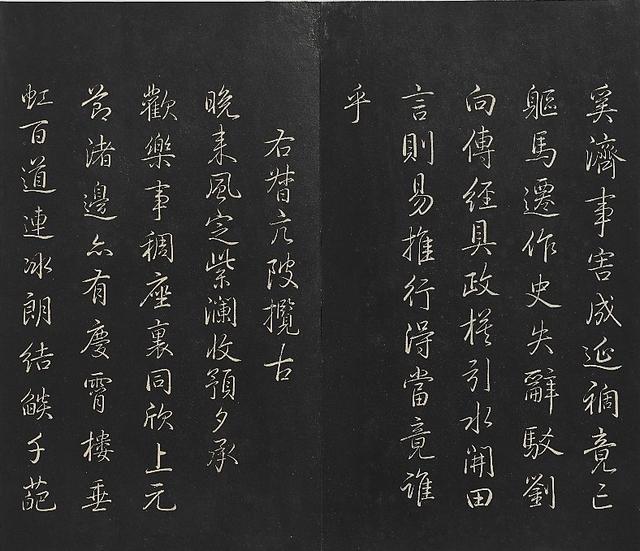 奚濟事害成延禍竟亡
軀馬遷作史失辭駁劉
向傳經具政模引水開田
言則易推行得當竟誰
乎
右督亢陂攬古
晚来風定紫瀾收預夕承
歡樂事稠座裏同欣上元
節渚邊亦有慶霄樓垂
虹百道連冰朗結燄千葩